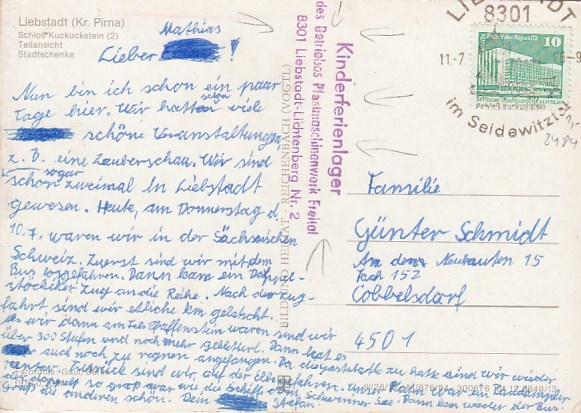 Liebstadt (Kr. Pirna)
Schloß Kuckuckstein (2)
Teilansicht
Stadtschenke
Mathias
Lieber !
Nun bin ich schon ein paar
Tage hier. Wir hatten schon viel
schöne Veranstaltungen,
z. B. eine Zauberschau. Wir sind
sogar
schon zweimal in Liebstadt
gewesen. Heute, am Donnerstag d.
10.7, waren wir in der Sächsischen
Schweiz. Zuerst sind wir mit dem
Bus losgefahren. Dann kam ein Doppel-
stockiger Zug an die Reihe. Nach der Zug-
fahrt sind wir etliche km gelatscht.
Als wir dann am Pfaffenstein waren sind wir
über 300 Stufen und noch mehr geklettert. Dann hat es
aber auch noch zu regnen angefangen.
Zurück sind wir, auf der Elbe gefahren. unser Kahn war ein
so groß war wie die Schiffe vom Schweriner See. Dann kam wieder der Bus.
die anderen schön. Dein Stefan.
Kinderferienlager
des Betriebes Plastmaschinenwerk Freital
8301 Liebstadt-Lichtenberg Nr. 2
BILD UND HEIMAT REICHENBACH (VOGTL)
LIEBSTADT
8301
11.-7
-9
im Seidewitztal
10
2484
Familie
Günter Schmidt
An den Neubauten 15
Fach 152
Cobbelsdorf
4501